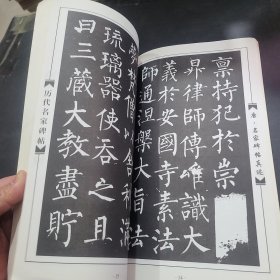 禀持犯於崇
昇律師傳唯識大
義於安國寺素法
師通涅槃大旨
夢梵僧以舍利滿
琉璃器使吞之且
曰三藏大教盡貯
历代名家碑帖